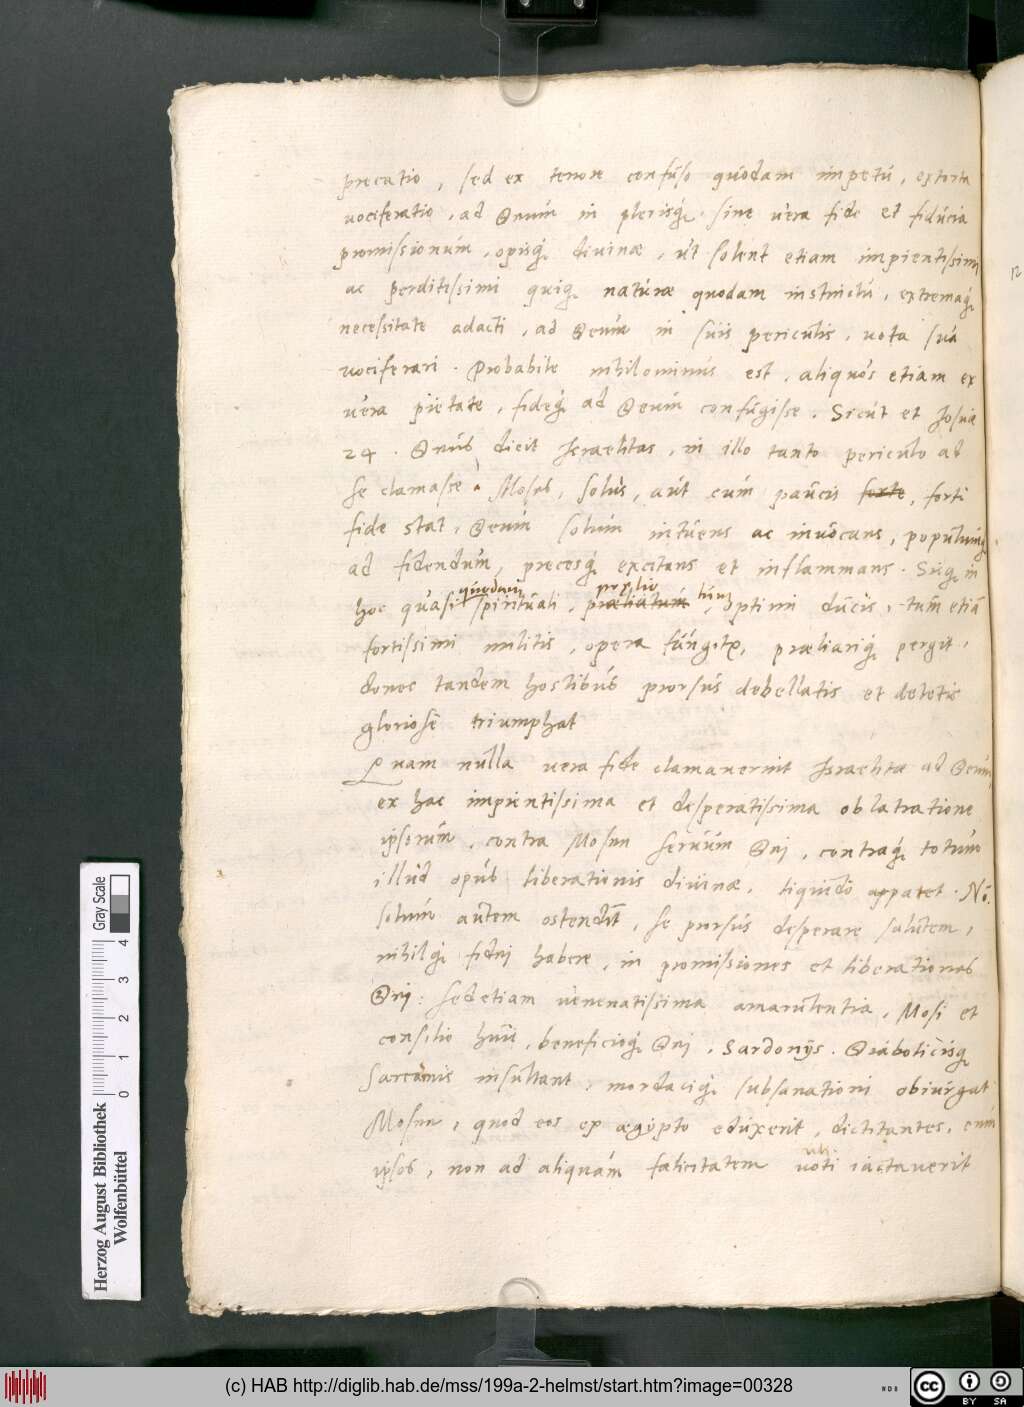 precatio, sed ex temore confuso quodam impetu, extorta
vociferatio, ad Deum in plerisq;. sine vera fide et fiducia
promissionum, opisq; divinæ, ut solent etiam impientissimi
ac perditissimi quiq; naturæ quodam instinctu, extremaq;
necessitate adacti, ad Deum in suis periculis, vota sua
vociferari. Probabile nihilominus est, aliquos etiam ex
vera pietate, fideq; ad Deum confugisse. Sicut et Josuæ
24. Dnus dicit Israelitas, in illo tanto periculo ad
se clamasse. Moses, solus, aut cum paucis forte, forti
fide stat, Deum solum intuens ac invocans, populumq;
ad fidendum, precesq; excitans et inflammans. Sicq; in
quodam prælio hinc
hoc quasi spirituali, præliatum, optimi ducis, tum etiā
fortissimi militis, opera fungitur, præliariq; pergit,
donec tandem hostibus prorsus debellatis et deletis
gloriose triumphat
Quam nulla vera fide clamaverint Israelitæ ad Deum,
ex hac impientissima et desperatissima oblatratione
ipsorum, contra Mosen servum Dni, contraq; totum
illud opus liberationis divinæ, liquido apparet. Nō.
solum autem ostendūt, se prorsus desperare salutem,
nihilq; fidei habere, in promissiones et liberationes
Dni: sed etiam venenatissima amarulentia, Mosi et
consilio huic, beneficioq; Dni, Sardonijs. Diabolicisq;
Sarcasmis insultant, mordaciq; subsanationi obiurgat
Mosen, quod eos ex ægypto eduxerit, dictitantes, eum
ipsos, non ad aliquam fælicitatem voti iactaverit
12
Gray Scale
0 1 2 3 4
Herzog August Bibliothek
Wolfenbüttel
(c) HAB http://diglib.hab.de/mss/199a-2-helmst/start.htm?image=00328
cc
BY SA